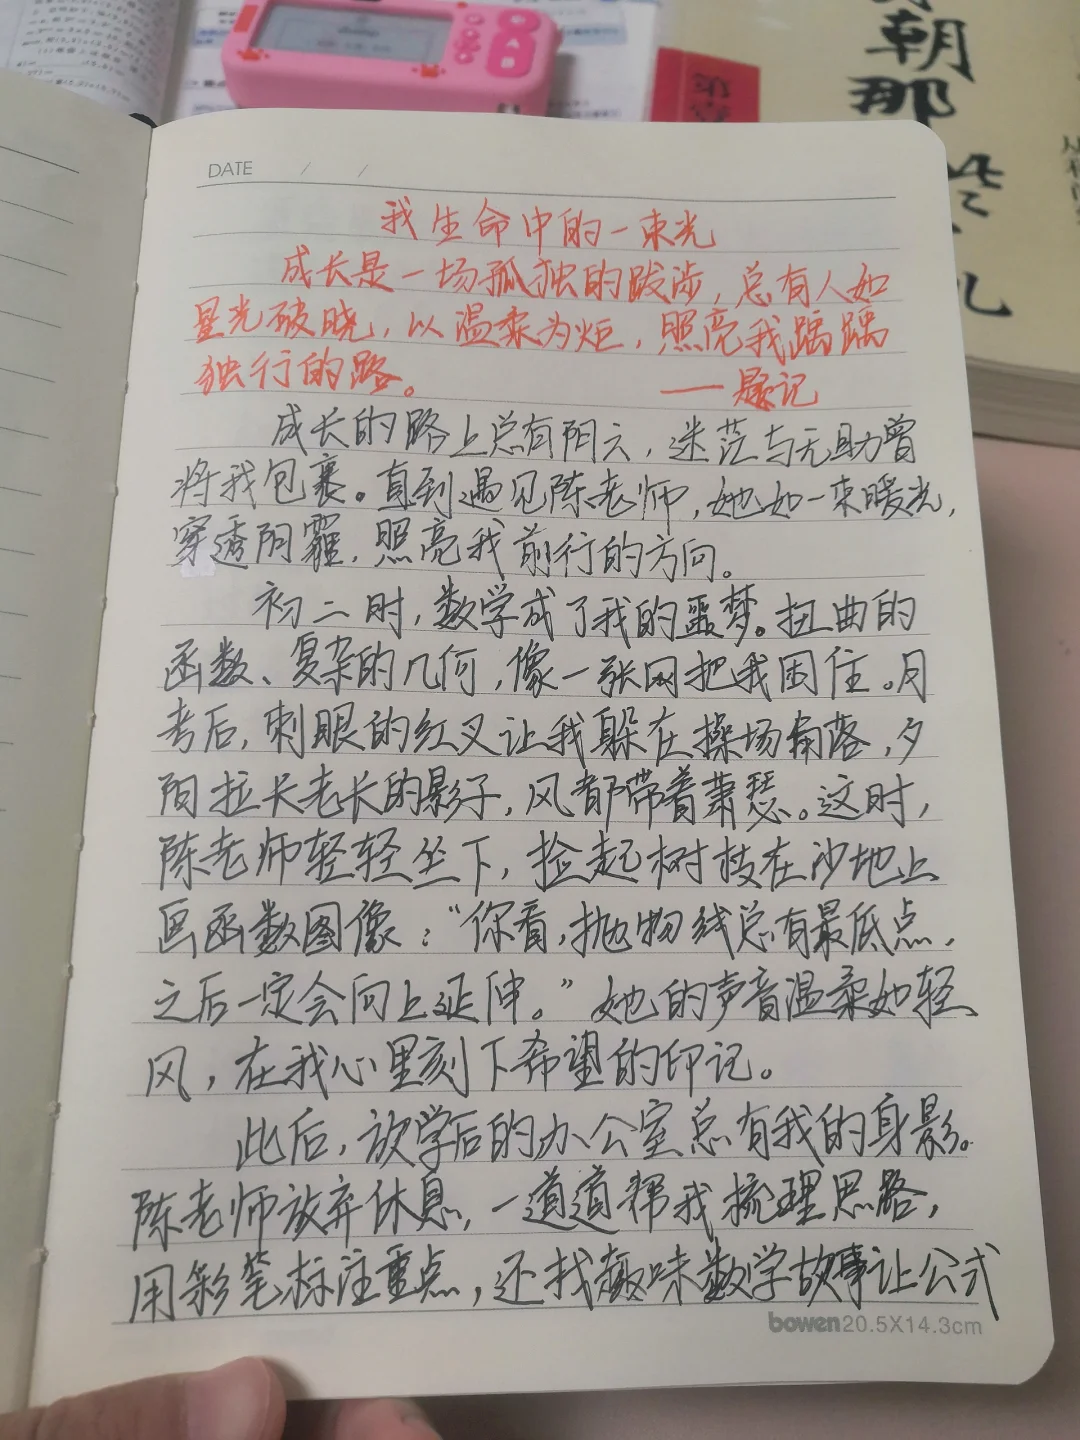 朝
那
些
DATE / /
我生命中的一束光
成长是一场孤独的跋涉，总有人如
星光破晓，以温柔为炬，照亮我踽踽
独行的路。 ——题记
成长的路上总有阴云，迷茫与无助曾
将我包裹。直到遇见陈老师，她如一束暖光，
穿透阴霾，照亮我前行的方向。
初二时，数学成了我的噩梦。扭曲的
函数、复杂的几何，像一张网把我困住。月
考后，刺眼的红叉让我躲在操场角落，夕
阳拉长老长的影子，风都带着萧瑟。这时，
陈老师轻轻坐下，捡起树枝在沙地上
画函数图像："你看，抛物线总有最低点，
之后一定会向上延伸。"她的声音温柔如轻
风，在我心里刻下希望的印记。
此后，放学后的办公室总有我的身影。
陈老师放弃休息，一道道帮我梳理思路，
用彩笔标注重点，还找趣味数学故事让公式
bowen 20.5X14.3cm